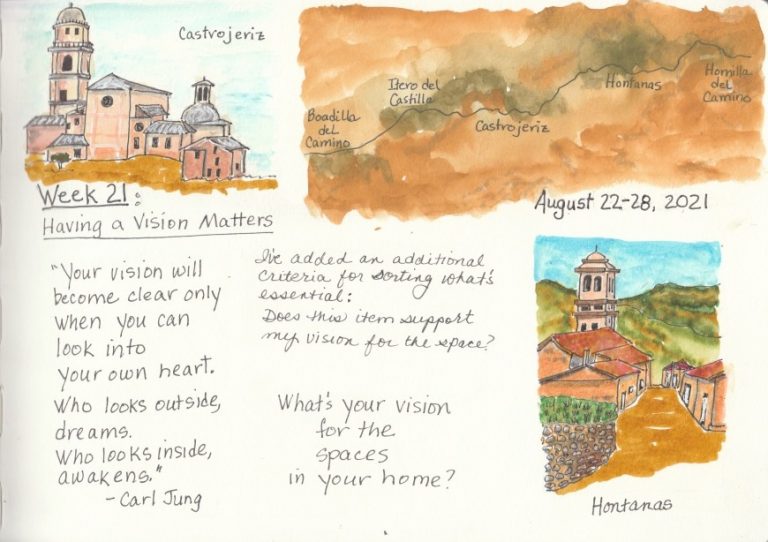 Castrojeriz
Boadilla
del
Camino
Itero del
Castilla
Castrojeriz
Hontanas
Hornilla
del
Camino
Week 21:
Having a Vision Matters
August 22-28, 2021
"Your vision will
become clear only
when you can
look into
your own heart.
Who looks outside,
dreams.
Who looks inside,
awakens."
- Carl Jung
I've added an additional
criteria for sorting what's
essential:
Does this item support
my vision for the space?
What's your vision
for the
spaces
in your home?
Hontanas